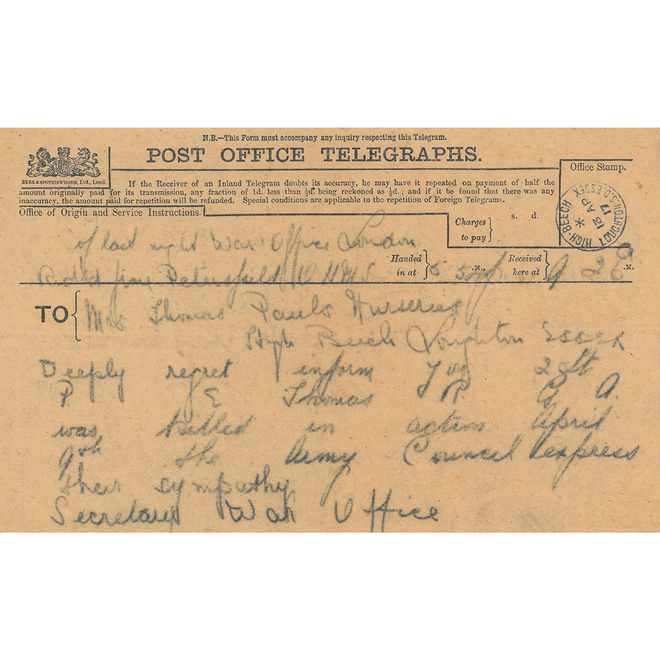 N.B.—This Form must accompany any inquiry respecting this Telegram.
POST OFFICE TELEGRAPHS.
EYRE & SPOTTISWOODE, Ltd., Lond.
If the Receiver of an Inland Telegram doubts its accuracy, he may have it repeated on payment of half the
amount originally paid for its transmission, any fraction of 1d. less than ½d. being reckoned as ½d.; and if it be found that there was any
inaccuracy, the amount paid for repetition will be refunded. Special conditions are applicable to the repetition of Foreign Telegrams.
Office Stamp.
HIGH-BEECH
LOUGHTON S.O. ESSEX
13 AP
17
Office of Origin and Service Instructions.
Charges
to pay
s. d.
of last night War Office London
from Petersfield OHMS
Handed
in at
5
M.,
Received
here at
9 28
M.
TO
Mrs Thomas Pauls Nurseries
High Beech Loughton ESSEX
Deeply regret inform you 2/Lt
P. E Thomas R G A.
was killed in action April
9th the Army Council express
their sympathy
Secretary War Office